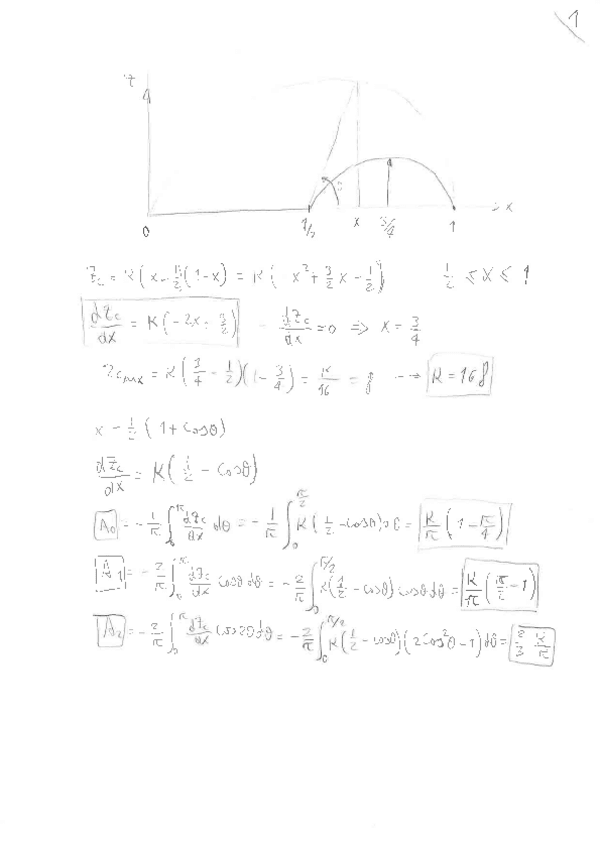 1
z
0 1/2 x 3/4 1 x
Z_c = K(x - 1/2)(1-x) = K(-x² + 3/2 x - 1/2) 1/2 ≤ x ≤ 1
dZ_c/dx = K(-2x + 3/2) dZ_c/dx = 0 ⇒ x = 3/4
Z_cmax = K(3/4 - 1/2)(1 - 3/4) = K/16 = f → K = 16f
x = 1/2 (1 + cosθ)
dZ_c/dx = K(1/2 - cosθ)
A_0 = -1/π ∫_0^π dZ_c/dx dθ = -1/π ∫_0^{π/2} K(1/2 - cosθ)dθ = K/π (1 - π/4)
A_1 = -2/π ∫_0^π dZ_c/dx cosθ dθ = -2/π ∫_0^{π/2} K(1/2 - cosθ) cosθ dθ = K/π (π/2 - 1)
A_2 = -2/π ∫_0^π dZ_c/dx cos2θ dθ = -2/π ∫_0^{π/2} K(1/2 - cosθ)(2cos²θ - 1) dθ = 2/3 K/π